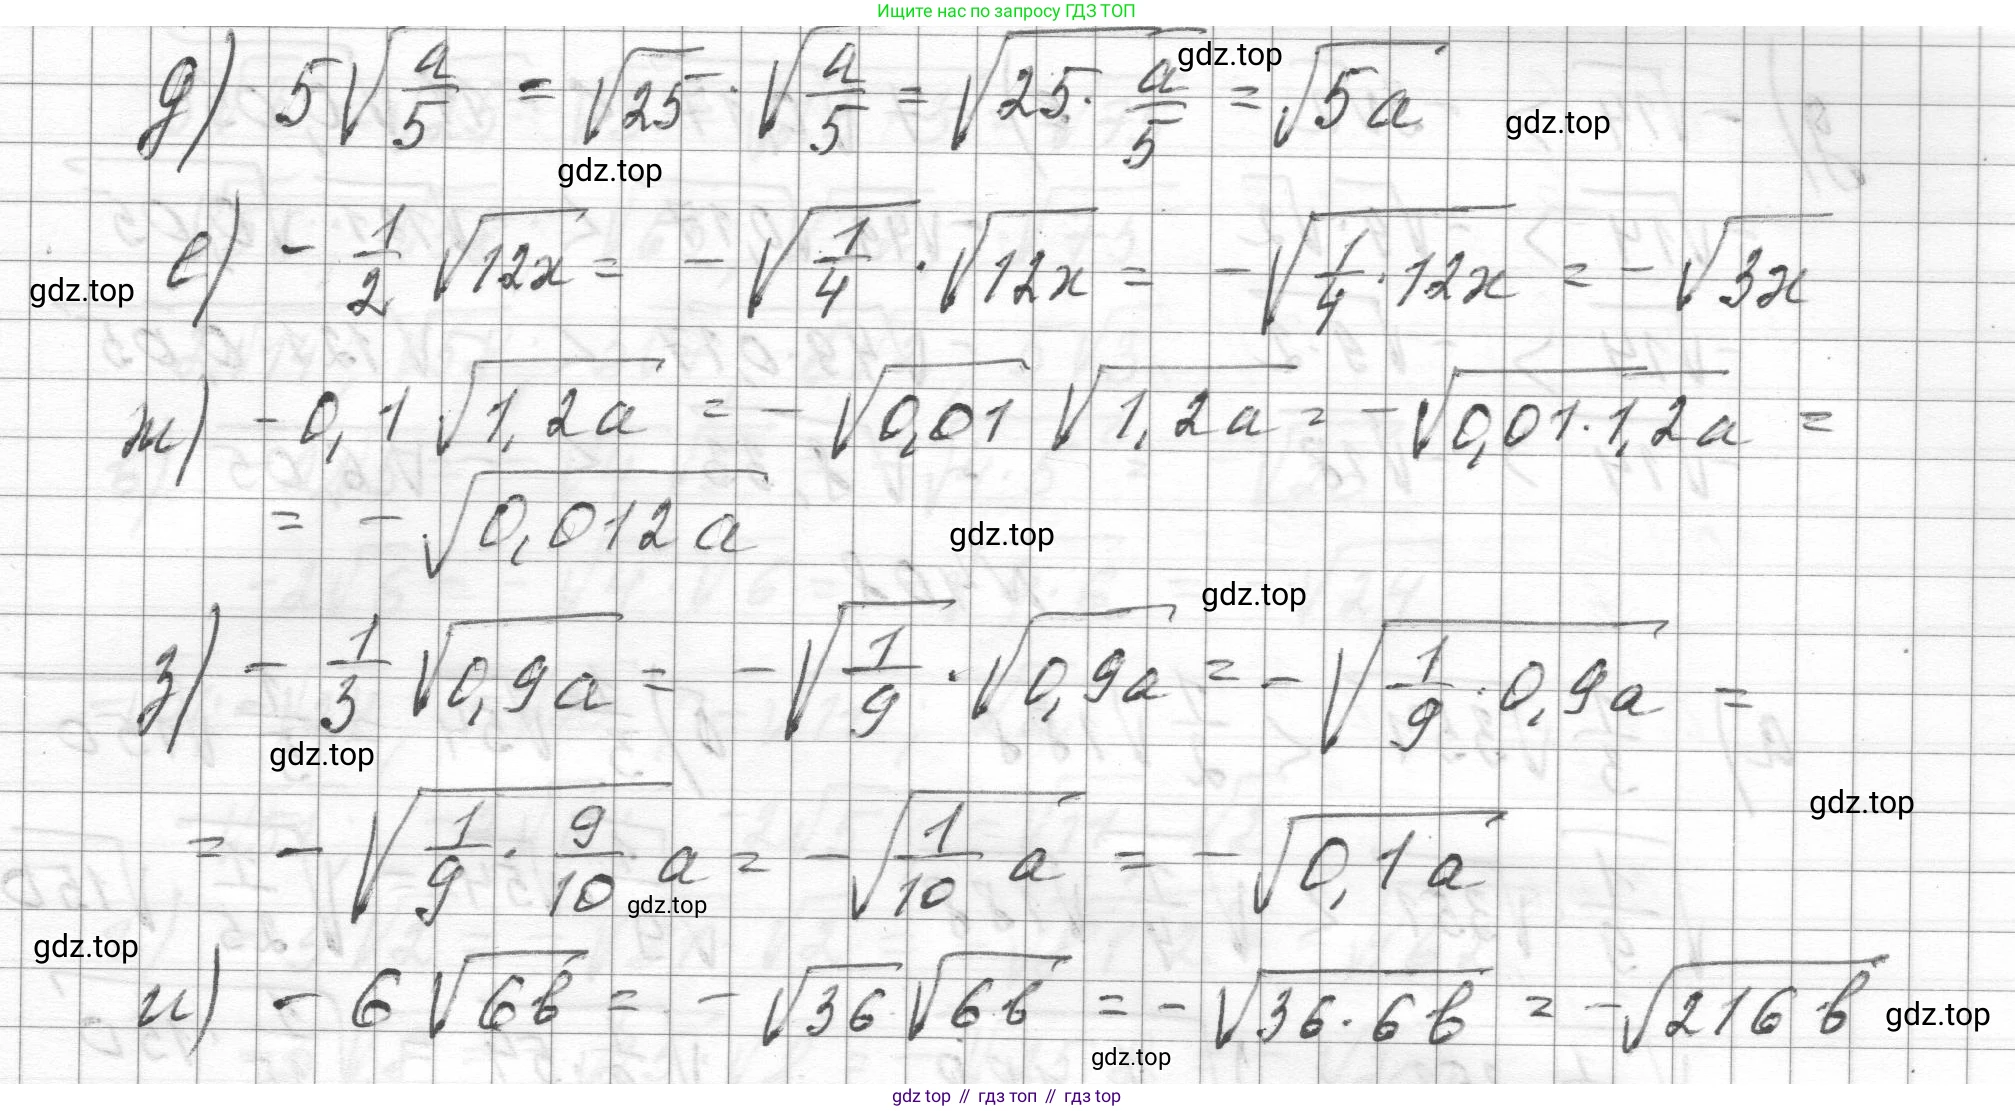 Ищите нас по запросу ГДЗ ТОП
д) 5√(a/5) = √25 · √(a/5) = √(25 · a/5) = √(5a)
gdz.top
gdz.top
gdz.top
е) - 1/2 √(12x) = - √(1/4) · √(12x) = - √(1/4 · 12x) = - √(3x)
gdz.top
ж) - 0,1 √(1,2a) = - √(0,01) √(1,2a) = - √(0,01 · 1,2a) =
= - √(0,012a)
gdz.top
gdz.top
з) - 1/3 √(0,9a) = - √(1/9) · √(0,9a) = - √(1/9 · 0,9a) =
gdz.top
gdz.top
= - √(1/9 · 9/10 a) = - √(1/10 a) = - √(0,1a)
gdz.top
gdz.top
и) - 6 √(6b) = - √36 √(6b) = - √(36 · 6b) = - √(216b)
gdz.top
gdz.top
gdz top // гдз топ // гдз top